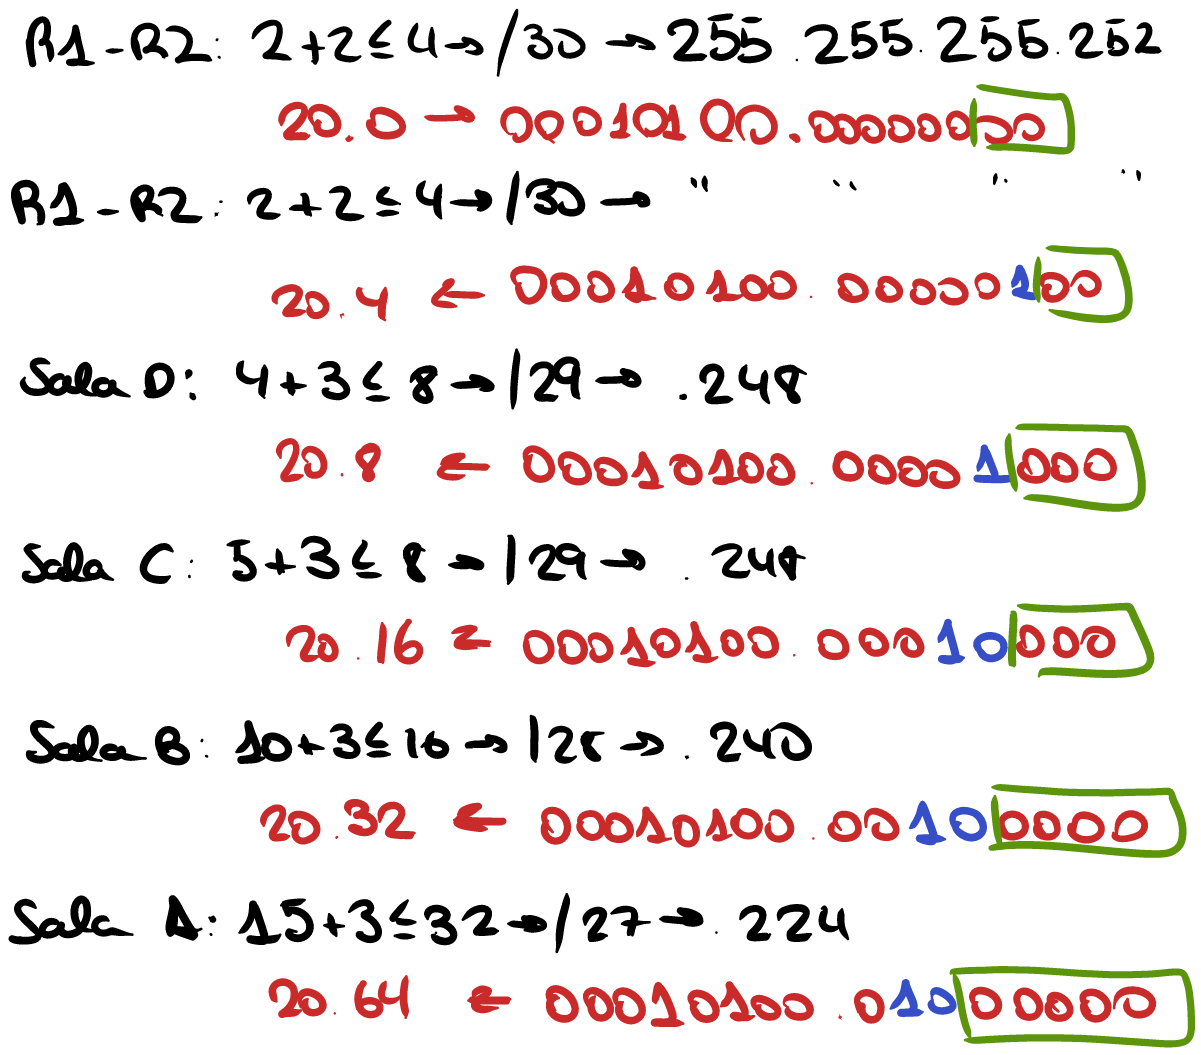 R1-R2: 2+2≤4→/30→255.255.255.252
20.0→00010100.00000000
R1-R2: 2+2≤4→/30→ " " " "
20.4←00010100.00000100
Sala D: 4+3≤8→/29→.248
20.8←00010100.00001000
Sala C: 5+3≤8→/29→.248
20.16←00010100.00010000
Sala B: 10+3≤16→/28→.240
20.32←00010100.00100000
Sala A: 15+3≤32→/27→.224
20.64←00010100.01000000